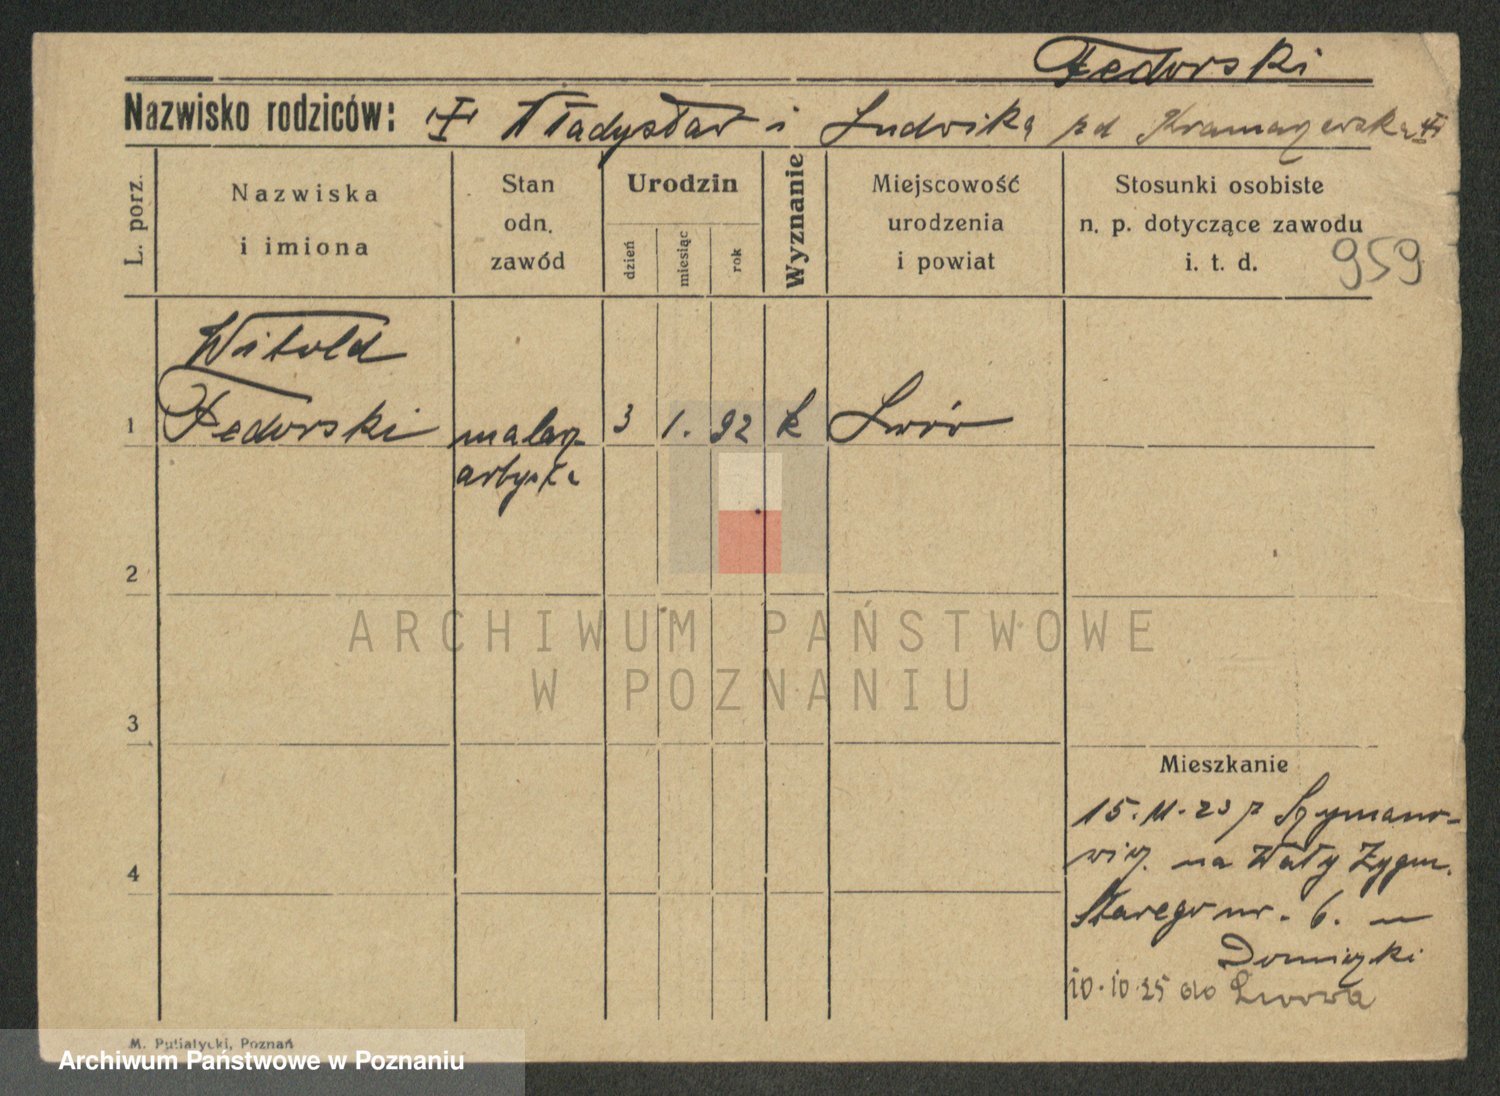 Fedorski
Nazwisko rodziców: Władysław i Ludwika pd
L. porz.
Nazwiska
i imiona
Stan
odn.
zawód
Urodzin
dzień
miesiąc
rok
Wyznanie
Miejscowość
urodzenia
i powiat
Stosunki osobiste
n. p. dotyczące zawodu
i. t. d.
959
Witold
1 Fedorski malarz 3 1. 92 k Lwów
artysta
2
3
4
Mieszkanie
15. 11. 23 Szymano-
wicz. na Wały Zygm.
Starego nr. 6. u
10. 10. 25 do Lwowa
M. Putiatycki, Poznań
ARCHIWUM PAŃSTWOWE
W POZNANIU
Archiwum Państwowe w Poznaniu